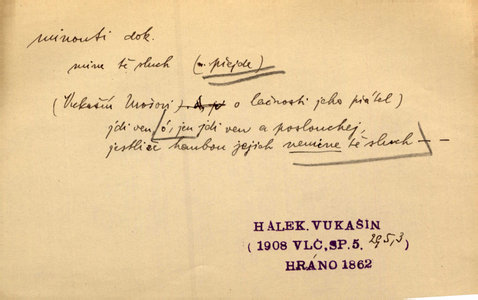 minouti dok.
mine tě sluch (= přejde)
(Vukašín Urošovi) o lačnosti jeho přátel)
jdi ven ó, jen jdi ven a poslouchej
jestliže hanbou jejich nemine tě sluch – –
HÁLEK. VUKAŠÍN
(1908 VLČ, SP. 5. 295,3)
HRÁNO 1862